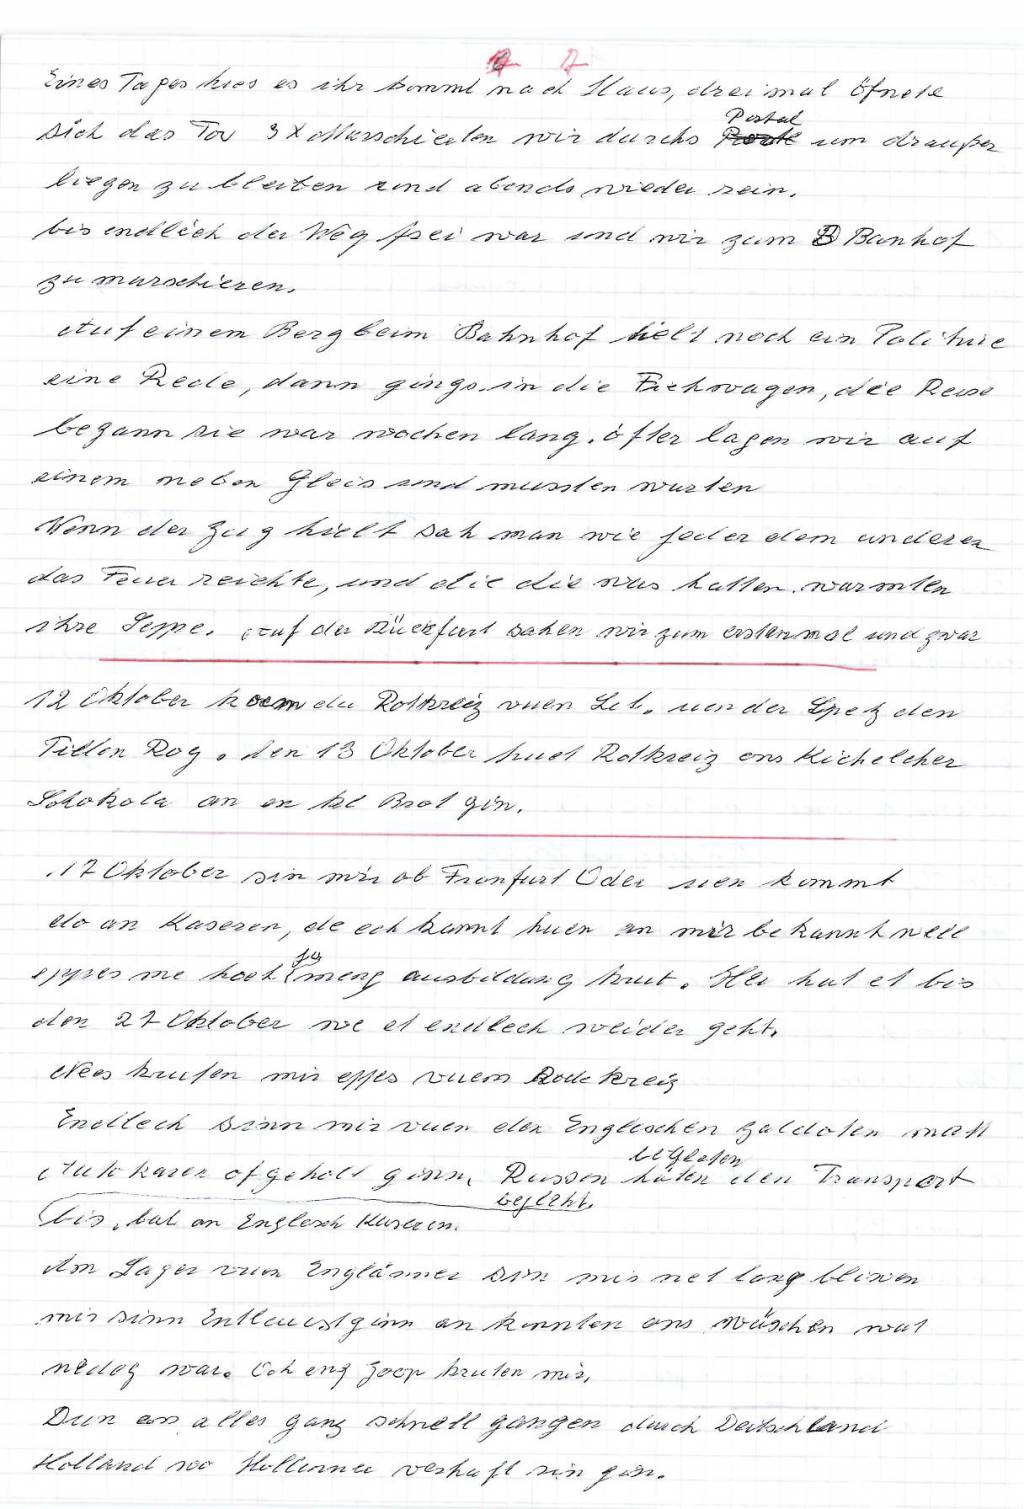 7 7
Eines Tages hies es ihr kommt nach Haus, dreimal öfnete
Portal
sich das Tor 3X Marschierten wir durchs um draußen
liegen zu bleiben und abends wieder rein.
bis endlich der Weg frei war und wir zum Banhof
zu marschieren.
Auf einem Berg beim Bahnhof hielt noch ein
eine Rede, dann gings in die Fiehwagen, die Reise
begann sie war wochen lang. öfter lagen wir auf
einem neben Gleis und mussten warten
Wenn der Zug hielt sah man wie jeder dem anderen
das Feuer reichte, und die die was hatten warmten
ihre Suppe. Auf der Rückfart sahen wir zum erstenmal und zwar
12 Oktober koem du Rotkreiz vuen Let. un der Spetz den
Tillen Rog. den 13 Oktober huet Rotkreiz ons Kichelcher
Schokola an en kl Brot gin.
17 Oktober sin mir ob Franfurt Oder uen kommt
do an Kaseren, de ech kannt huen an mir bekannt well
eppes me hoch meng ausbildung hut. Hei hat et bis
den 27 Oktober we et endlech weider geht.
Nees kruten mir eppes vuem Rode kreiz
Endlech sinn mir vuen den Engleschen Zaldoten matt
begleten
Autokaren ofgeholt ginn, Russen häten den Transport
begleht.
bis, bal an Englesch Kaseren.
Am Lager vuen Englänner sin mir net lang bliwen
mir sinn Entlaust ginn an konnten ons wäschen wat
nedeg war. Och eng Zopp kruten mir,
Dun as alles ganz schnell gangen durch Deitschland
Holland wo Hollänner verhaft sin gin.